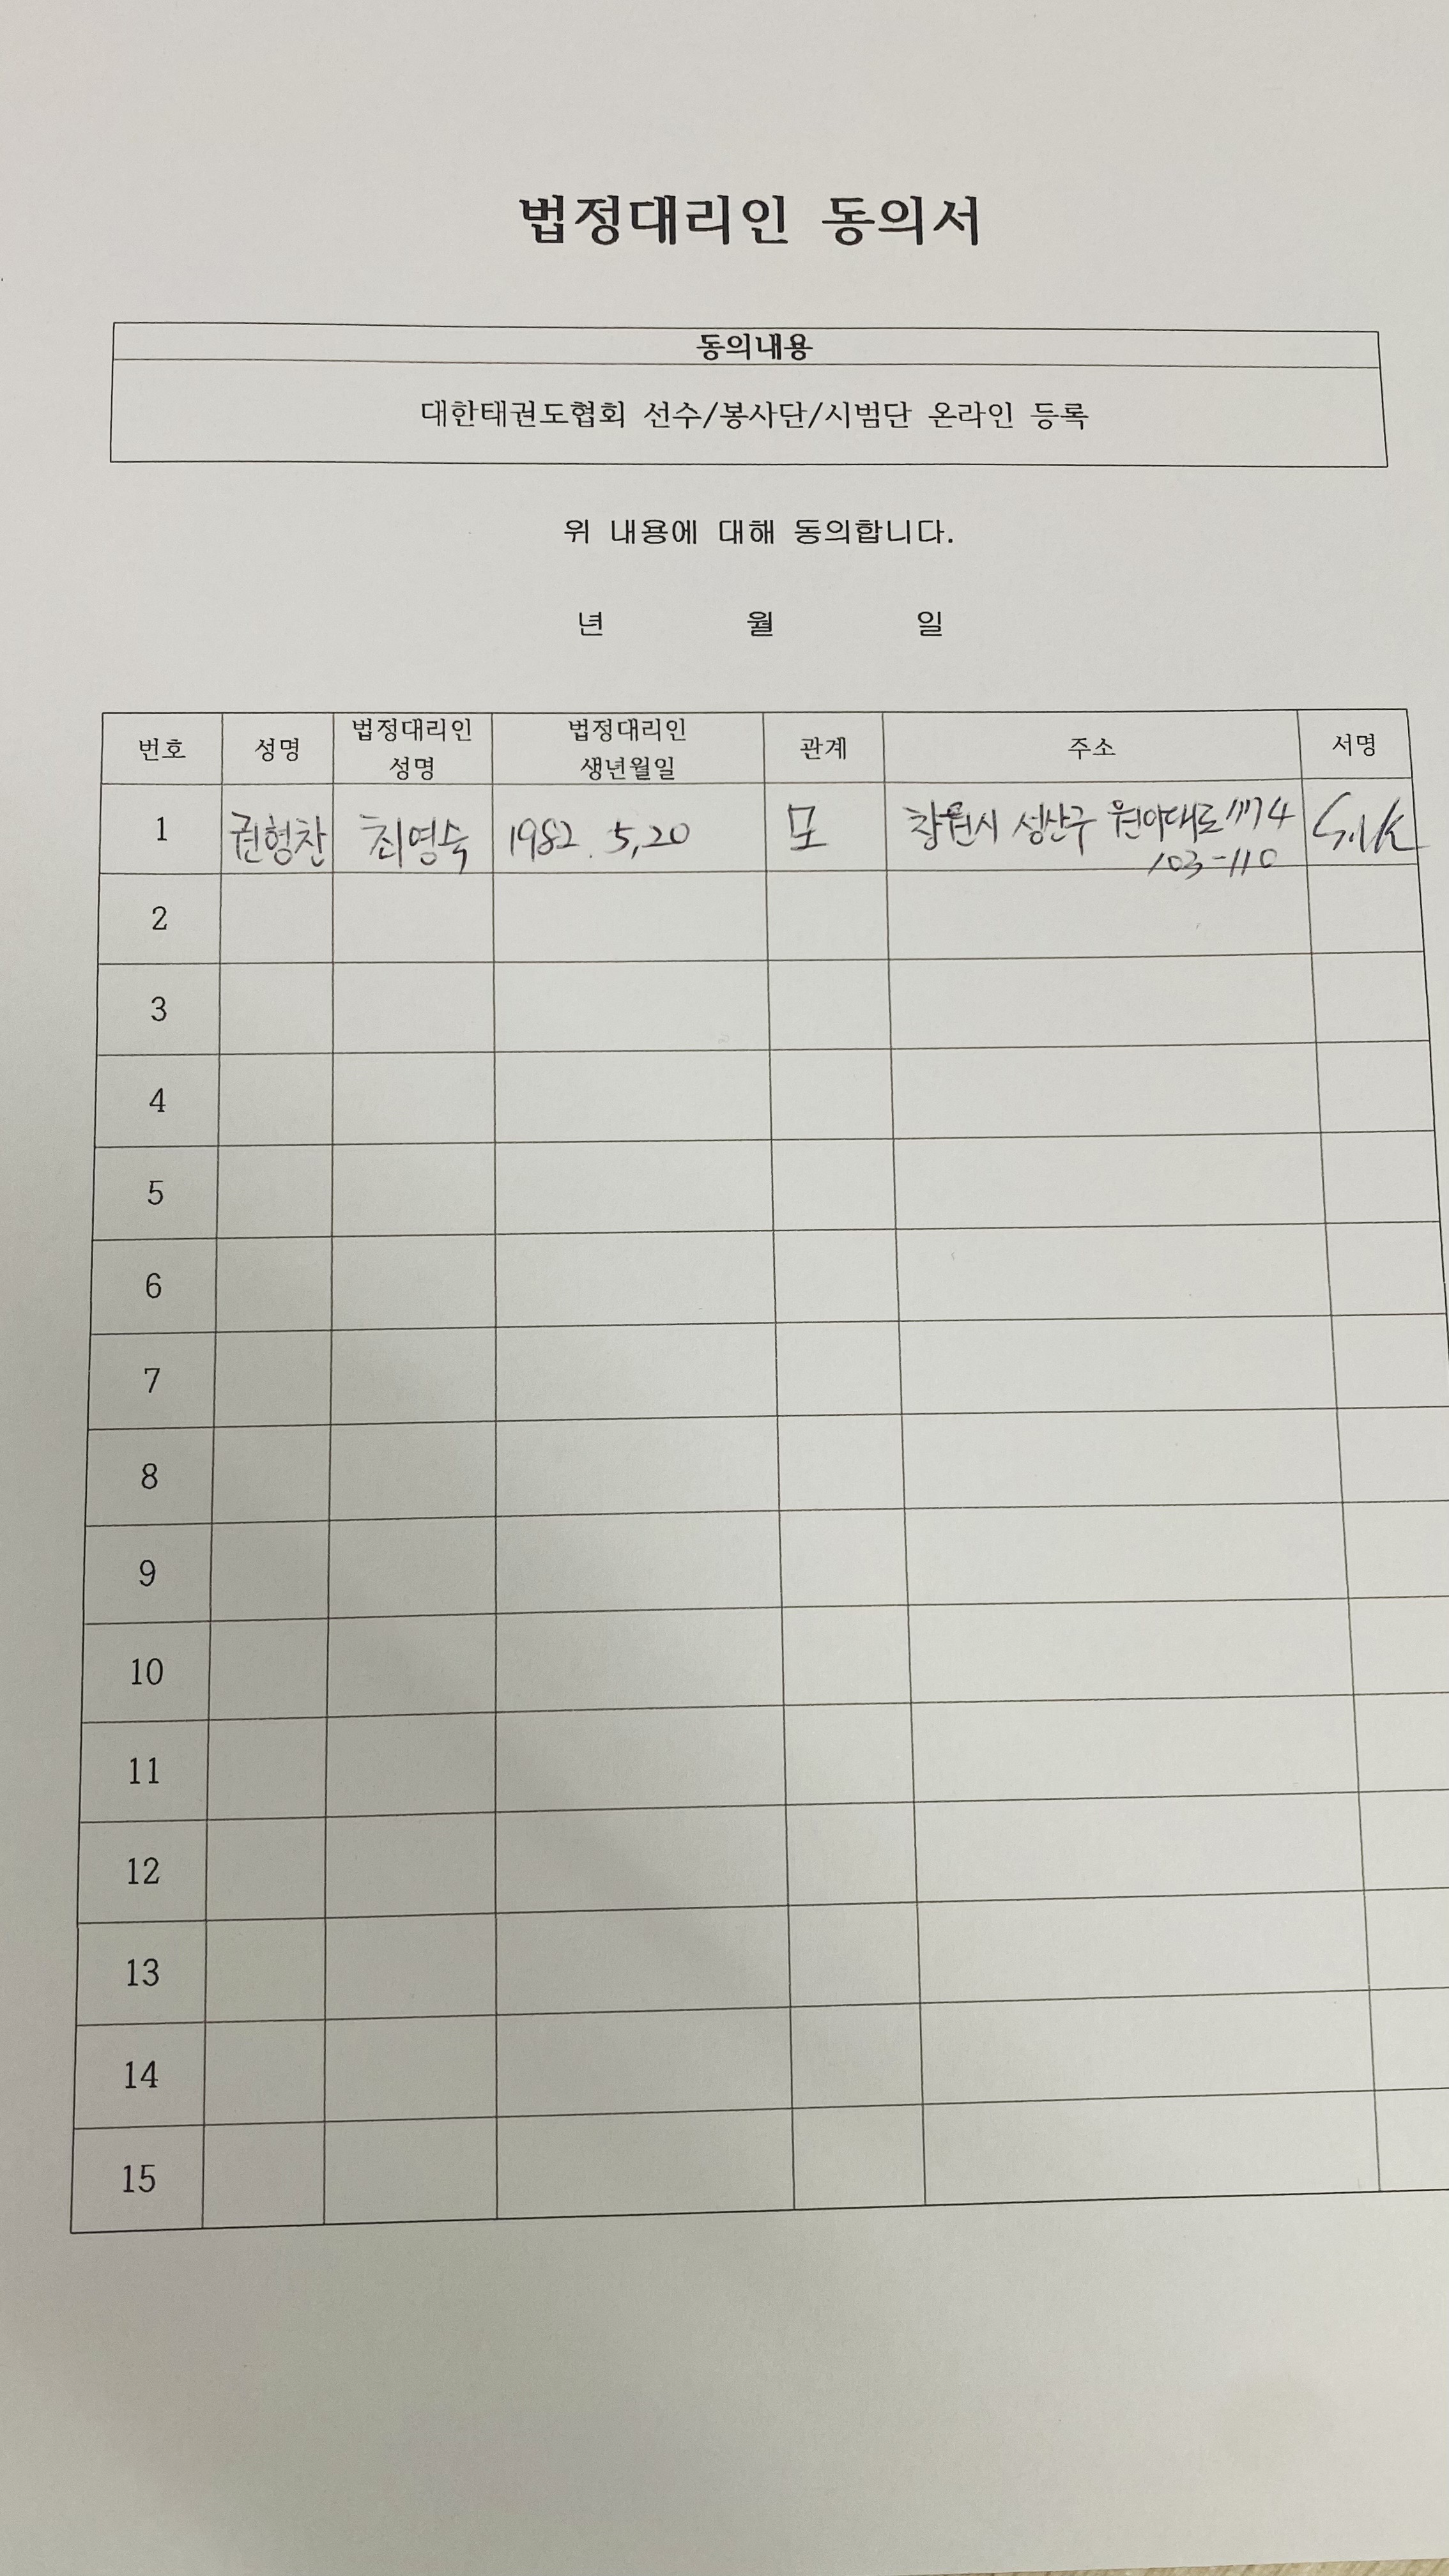 법정대리인 동의서
동의내용
대한태권도협회 선수/봉사단/시범단 온라인 등록
위 내용에 대해 동의합니다.
년 월 일
번호 성명 법정대리인 성명 법정대리인 생년월일 관계 주소 서명
1 권형찬 최영숙 1982. 5,20 모 창원시 성산구 원이대로 774
103-110
2
3
4
5
6
7
8
9
10
11
12
13
14
15